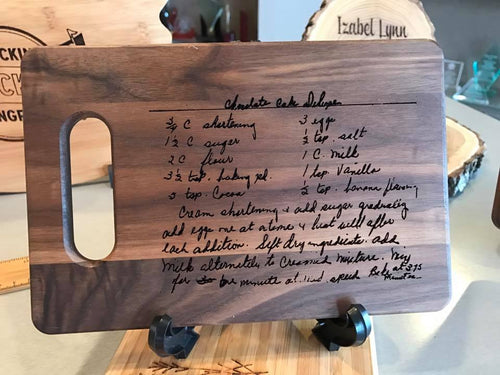 Izabel Lynn
Chocolate Cake Deluxe
3/4 C shortening
1 1/2 C sugar
2 C flour
3 1/2 tsp. baking pd.
3 tsp. Cocoa
3 eggs
1/2 tsp. salt
1 C. Milk
1 tsp Vanilla
1/2 tsp. banana flavoring
Cream shortening & add sugar gradually
add eggs one at a time & beat well after
each addition. Sift dry ingredients. add
milk alternately to creamed mixture. Mix
for one minute at med. speed Bake at 375